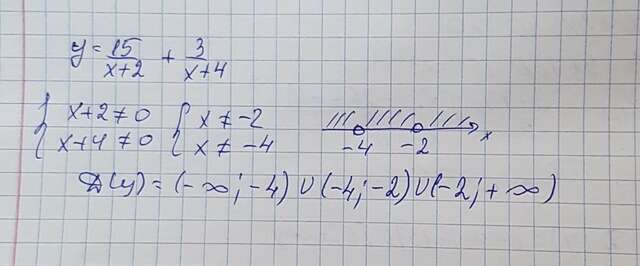 y = 15/(x+2) + 3/(x+4)
{ x+2 ≠ 0 { x ≠ -2
{ x+4 ≠ 0 { x ≠ -4
-4 -2 x
D(y) = (-∞; -4) ∪ (-4; -2) ∪ (-2; +∞)